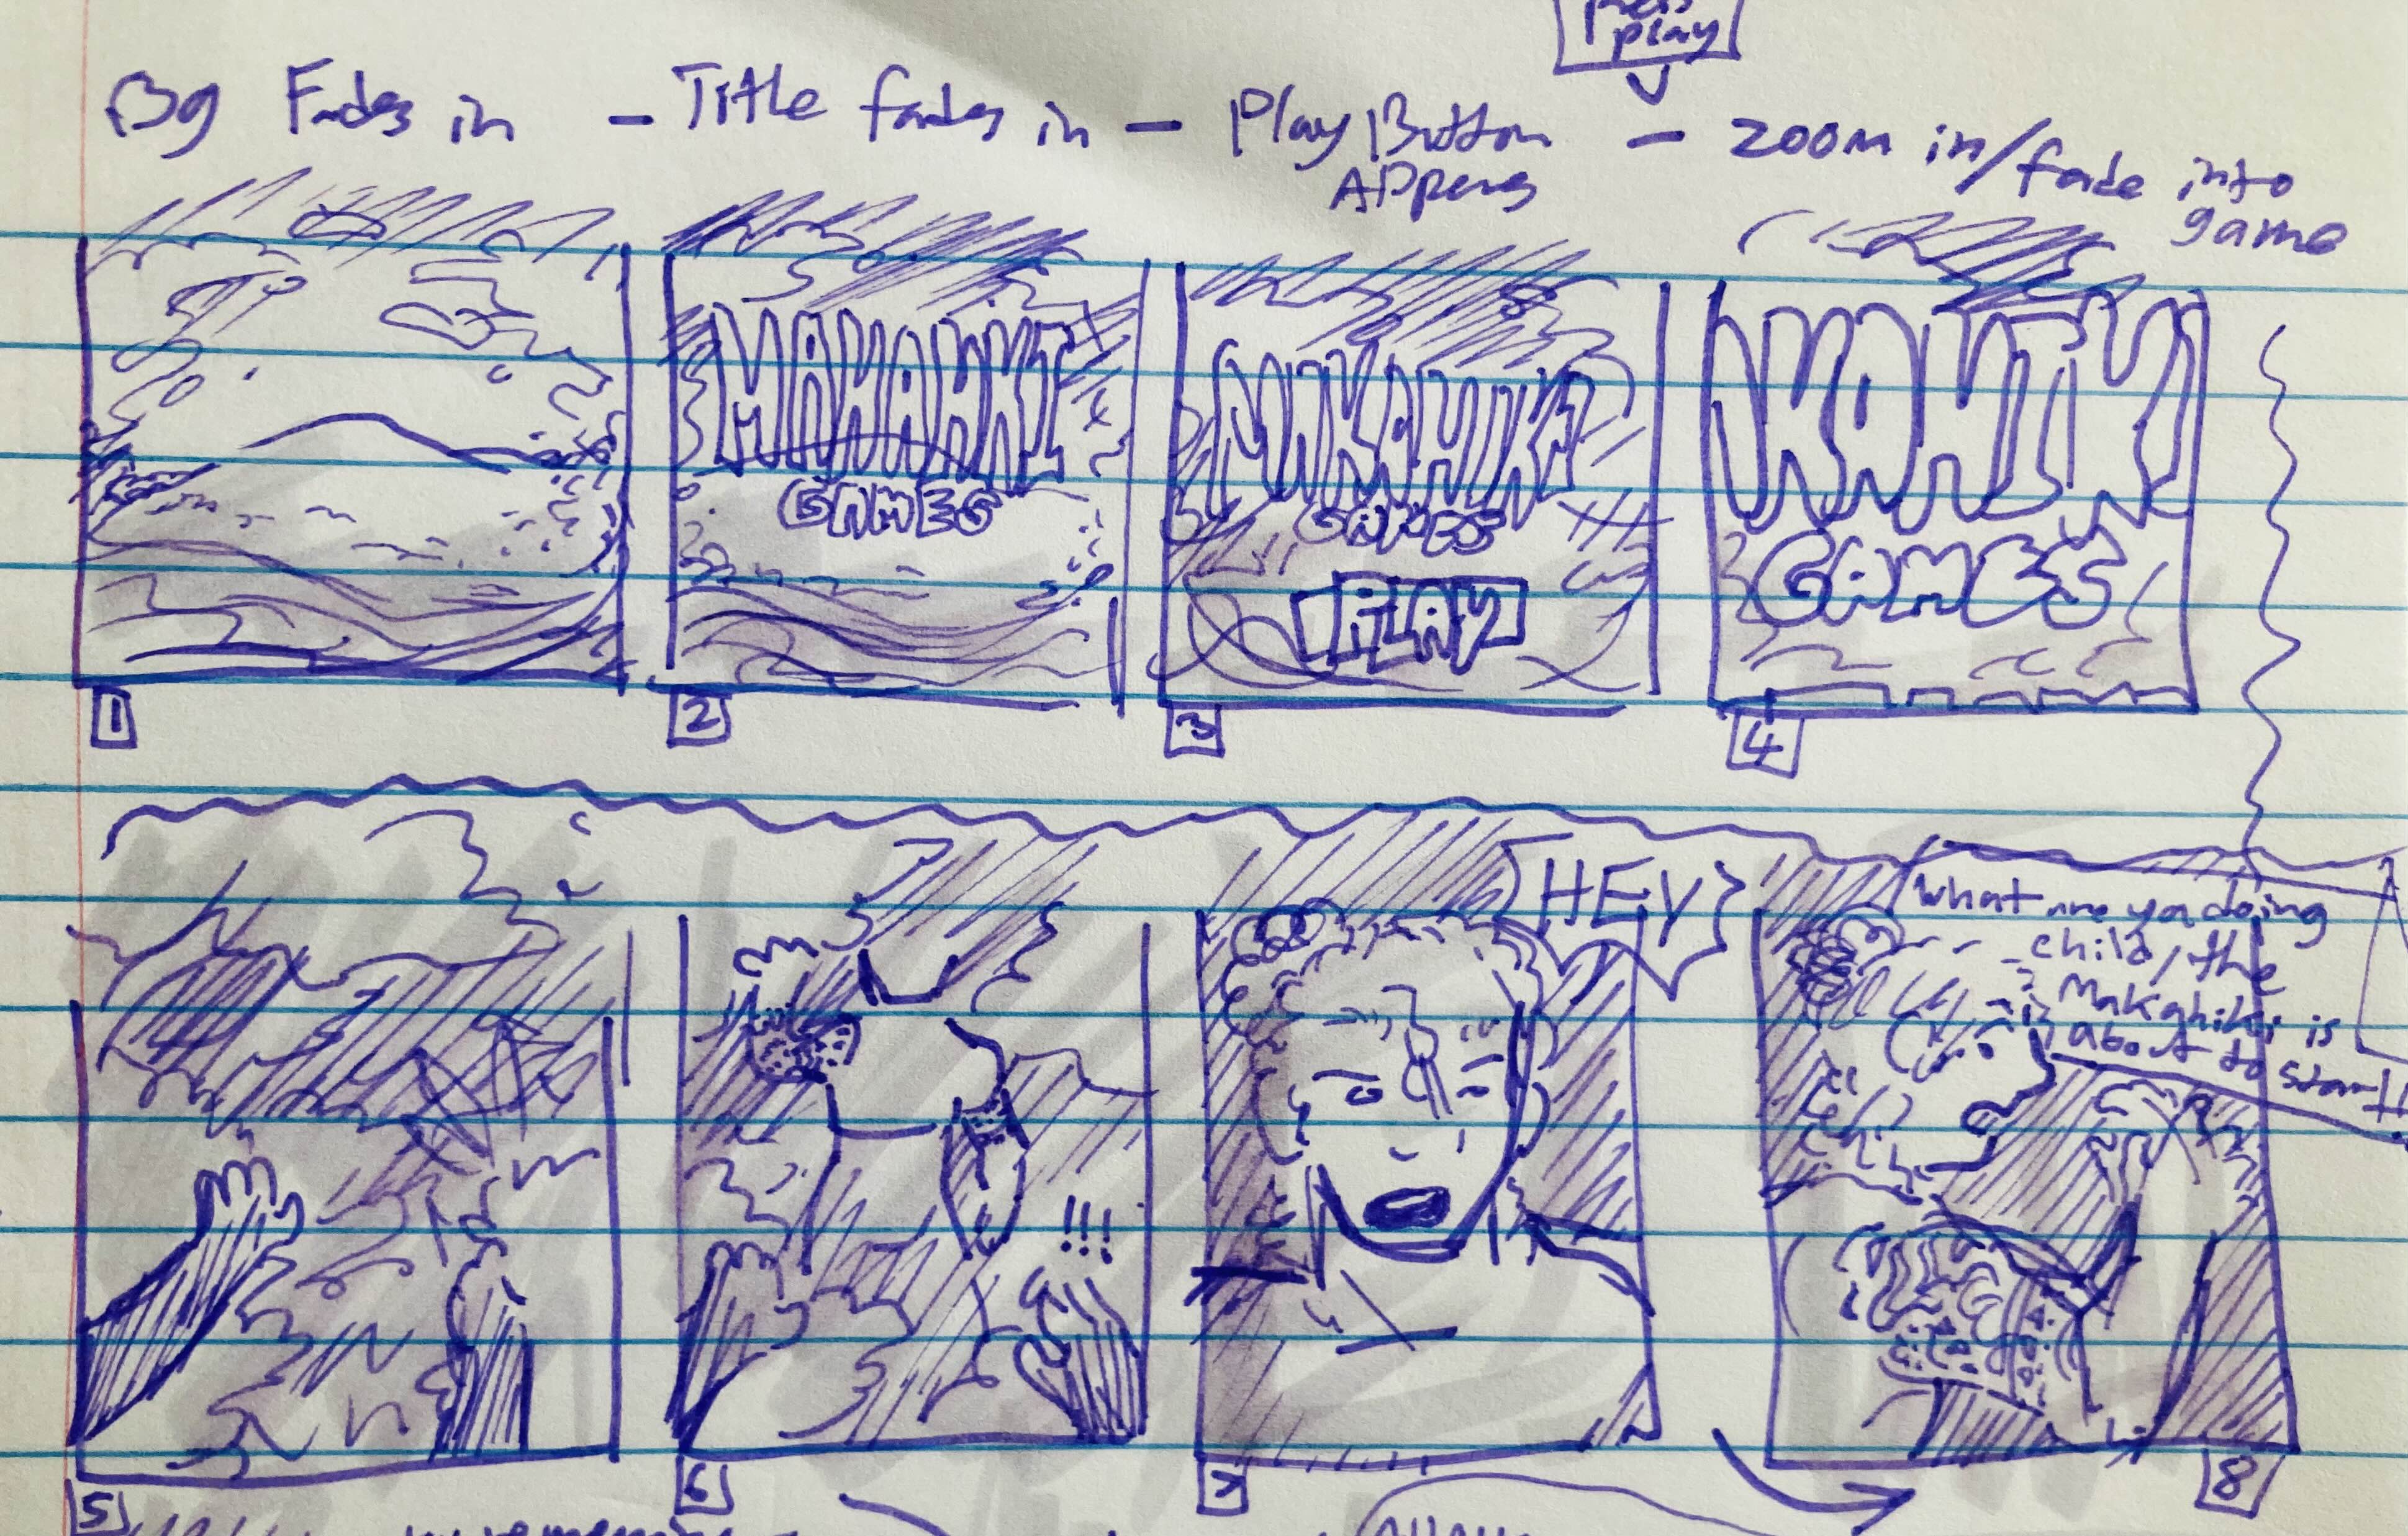 play
Bg Fades in - Title fades in - Play Button Appers - zoom in/fade into game
MAKAHIKI
GAMES
MAKAHIKI
GAMES
PLAY
KAHIK
GAMES
1
2
3
4
HEY
What are you doing
child, the
Makahiki is
about to start!
!!!
5
6
7
8